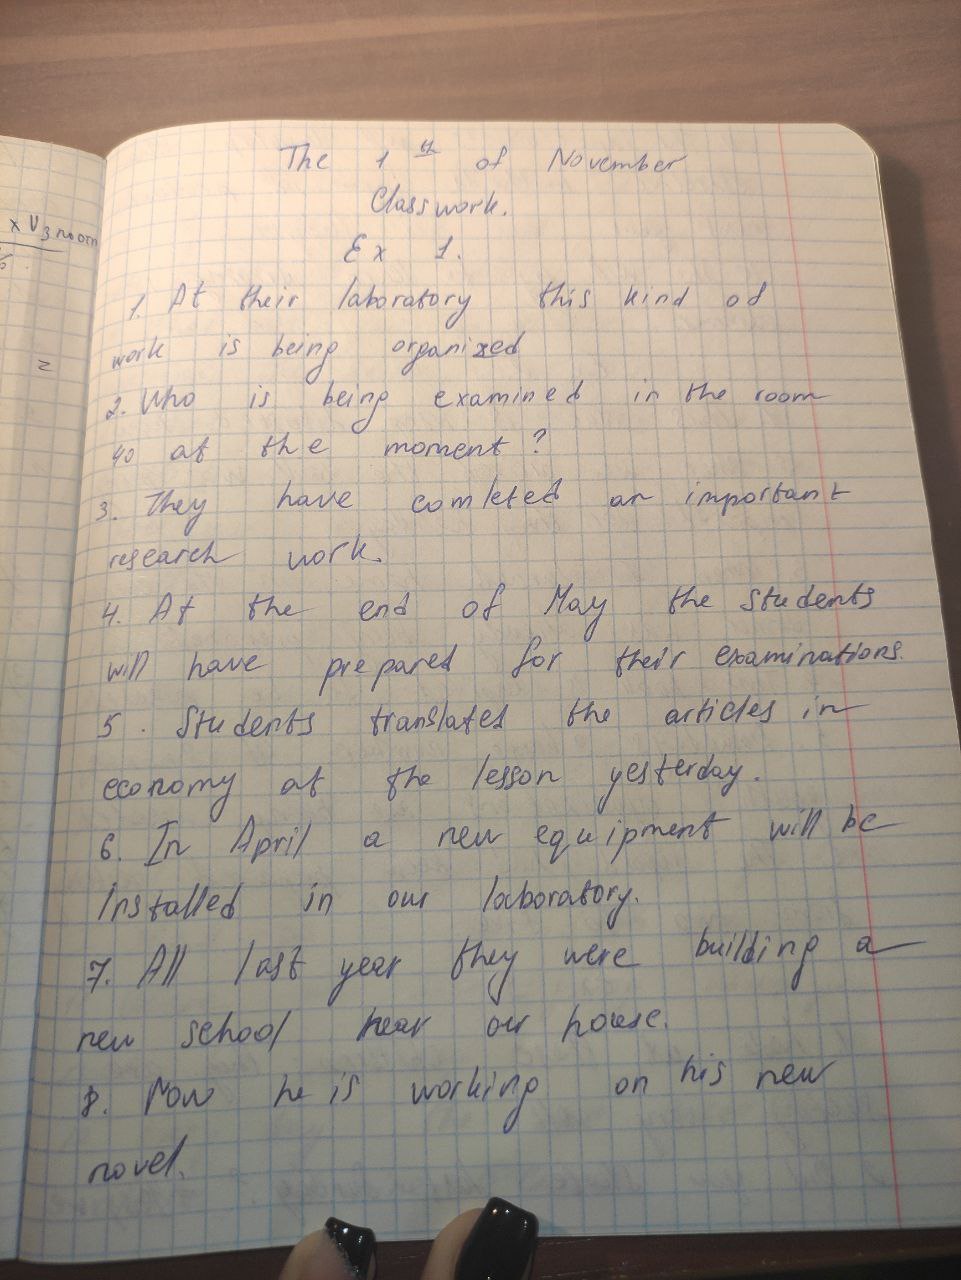 x V 3 room
%
=
The 1th of November
Classwork.
Ex 1.
1. At their laboratory this kind of
work is being organized
2. Who is being examined in the room
40 at the moment?
3. They have comleted an important
research work.
4. At the end of May the students
will have prepared for their examinations.
5. Students translated the articles in
economy at the lesson yesterday.
6. In April a new equipment will be
installed in our laboratory.
7. All last year they were building a
new school near our house.
8. Now he is working on his new
novel.